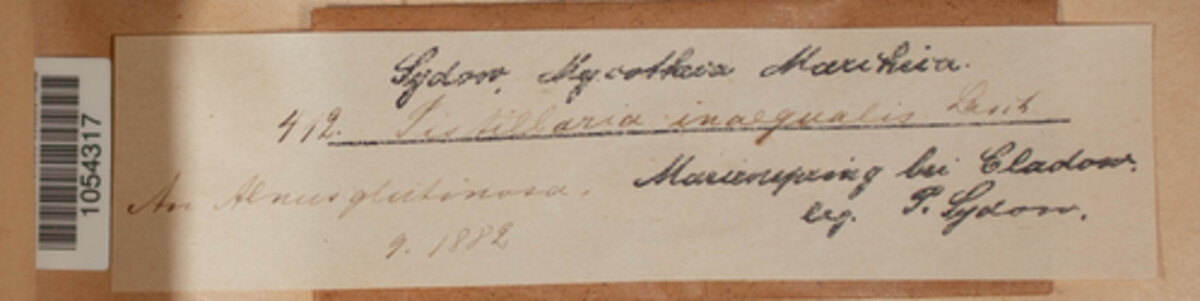 Sydow, Mycotheca Marchica.
412. Pistillaria inaequalis Lasch
An Alnus glutinosa.
Marienspring bei Cladow.
leg. P. Sydow.
9. 1882
1054317